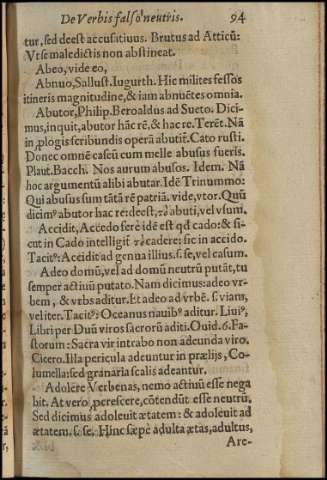 De Verbis falsò neutris. 94
tur, sed deest accusatiuus. Brutus ad Atticũ:
Vt se maledictis non abstineat.
Abeo, vide eo,
Abnuo, Sallust. Iugurth. Hic milites fessos
itineris magnitudine, & iam abnuẽtes omnia.
Abutor, Philip. Beroaldus ad Sueto. Dici-
mus, inquit, abutor hãc rẽ, & hac re. Terẽt. Nã
in, plogis scribundis operã abutiť. Cato rusti.
Donec omnẽ caseũ cum melle abusus fueris.
Plaut. Bacch. Nos aurum abusos. Idem. Nã
hoc argumentũ alibi abutar. Idẽ Trinummo:
Qui abusus sum tãtã rẽ patriã. vide, vtor. Quũ
dicimꝰ abutor hac re: deest, τὸ abuti, vel vsum.
Accidit, Accedo ferè idẽ est qđ cado: & si-
cut in Cado intelligiť τὸ cadere: sic in accido.
Tacitꝰ: Accidit ad genua illius. s. se, vel casum.
Adeo domũ, vel ad domũ neutrũ putãt, tu
semper actiuũ putato. Nam dicimus: adeo vr-
bem, & vrbs aditur. Et adeo ad vrbẽ. s. viam,
vel iter. Tacitꝰ: Oceanus nauibꝰ aditur. Liuiꝰ,
Libri per Duũ viros sacrorũ aditi. Ouid. 6. Fa-
storum: Sacra vir intrabo non adeunda viro.
Cicero. Illa pericula adeuntur in prælijs, Co-
lumella: sed granaria scalis adeantur.
Adolere Verbenas, nemo actiuũ esse nega
bit. At vero, perescere, cõtendũt esse neutrũ.
Sed dicimus adoleuit ætatem: & adoleuit ad
ætatem. s. se. Hinc sæpè adulta ætas, adultus,
Are-